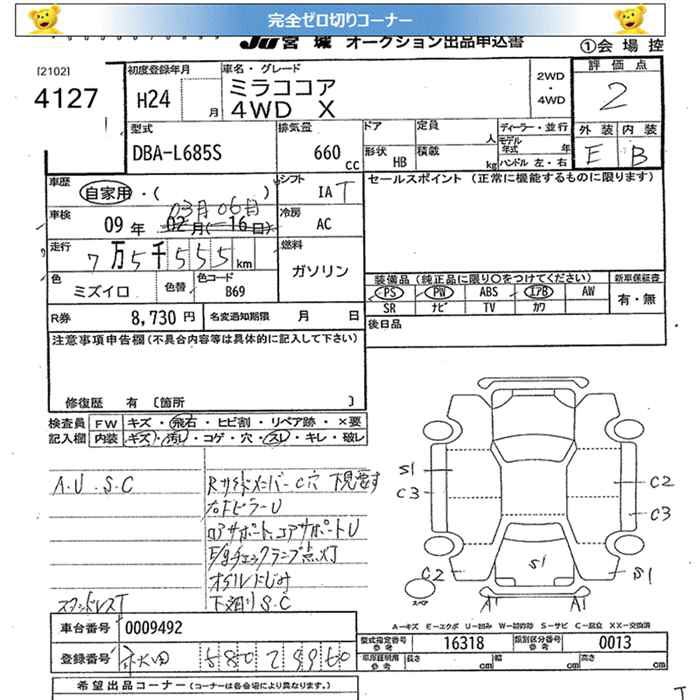 完全ゼロ切りコーナー
JU 宮 城 オークション出品申込書
①会 場 控
[2102]
4127
初度登録年月
H24 月
車名・グレード
ミラココア
4WD X
2WD
・
4WD
評 価 点
2
型式
DBA-L685S
排気量
660 cc
ドア
形状 HB
定員 人
積載 kg
ディーラー・並行
モデル年式 年
ハンドル 左・右
外 装 内 装
E B
車歴
自家用・( )
シフト
IAT
セールスポイント (正常に機能するものに限ります)
車検
09 年 02月(-16日)
03月06日
冷房
AC
走行
7万5千555km
燃料
ガソリン
色
ミズイロ
色替
色コード
B69
装備品(純正品に限り○をつけてください)
新車保証書
PS PW ABS エアB AW
SR ナビ TV カワ
有・無
R券 8,730 円
名変通知期限 月 日
後日品
注意事項申告欄(不具合内容等は具体的に記入して下さい)
修復歴 有 〔箇所 〕
検査員 FW キズ・飛石・ヒビ割・リペア跡・×要
記入欄 内装 キズ・汚し・コゲ・穴・スレ・キレ・破レ
A.U.S.C
Rサイドメンバー C穴 下見要す
右FピラーU
ロアサポート、コアサポートU
E/gチェックランプ点灯
オイルにじみ
下廻りS.C
スタッドレスT
S1
C3
C2
C3
S1
C2
S1
スペア
A1
A1
A-キズ E-エクボ U-凹み W-補修跡 S-サビ C-腐食 XX-交換済
車台番号 0009492
型式指定番号 16318
類別区分番号 0013
参考
長さ cm
幅 cm
高さ cm
登録番号 580 2 9960
希望出品コーナー(コーナーは各会場により異なります。)